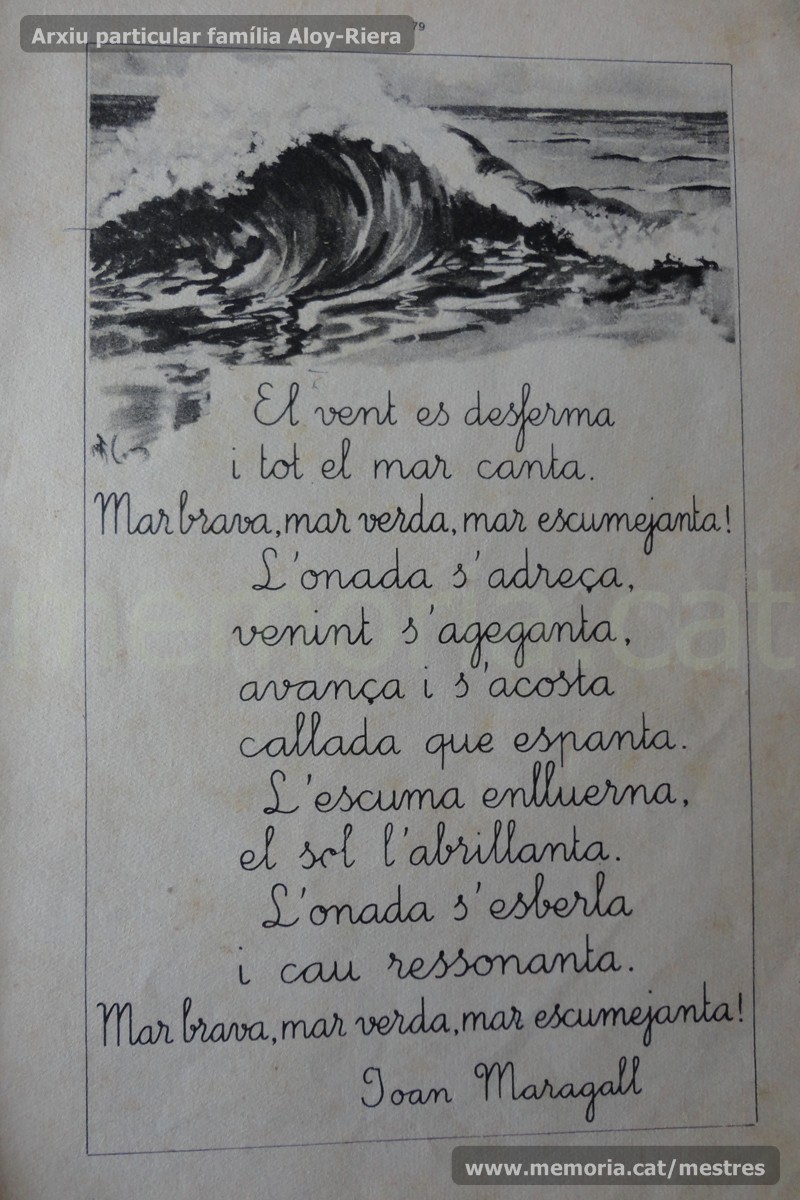 Arxiu particular família Aloy-Riera
79
El vent es desferma
i tot el mar canta.
Mar brava, mar verda, mar escumejanta!
L'onada s'adreça,
venint s'ageganta,
avança i s'acosta
callada que espanta.
L'escuma enlluerna,
el sol l'abrillanta.
L'onada s'esberla
i cau ressonanta.
Mar brava, mar verda, mar escumejanta!
Joan Maragall
memoria.cat
www.memoria.cat/mestres